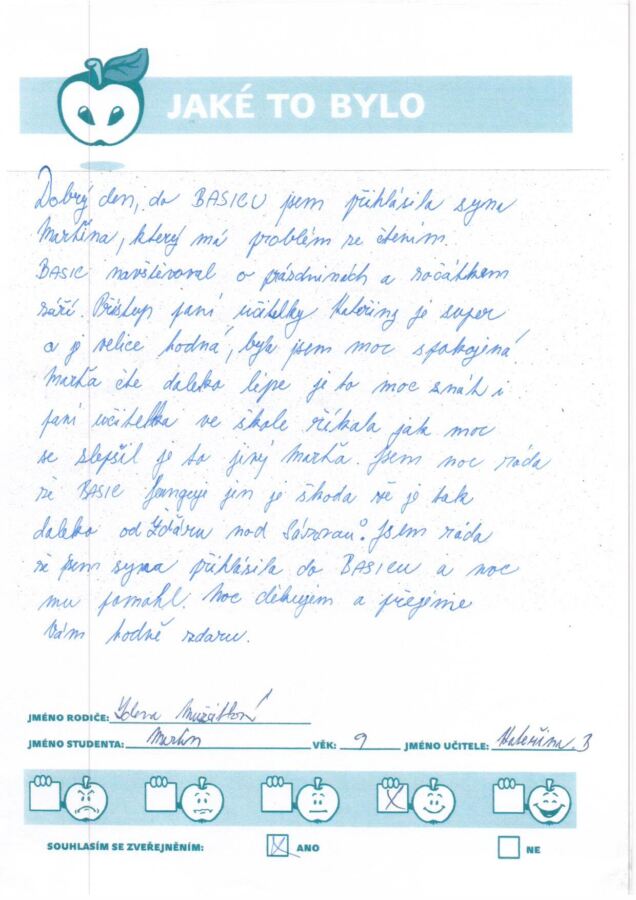 JAKÉ TO BYLO
Dobrý den, do BASICU jsem přihlásila syna
Martina, který má problém se čtením.
BASIC navštěvoval o prázdninách a začátkem
září. Přístup paní učitelky Kateřiny je super
a je velice hodná, byla jsem moc spokojená.
Marťa čte daleko lépe je to moc znát i
paní učitelka ve škole říkala jak moc
se zlepšil je to jiný Marťa. Jsem moc ráda
že BASIC funguje jen je škoda že je tak
daleko od Žďáru nad Sázavou. Jsem ráda
že jsem syna přihlásila do BASICU a moc
mu pomohl. Moc děkujem a přejeme
Vám hodně zdaru.
JMÉNO RODIČE:
JMÉNO STUDENTA: Martin VĚK: 9 JMÉNO UČITELE: Kateřina. B
SOUHLASÍM SE ZVEŘEJNĚNÍM: ANO NE